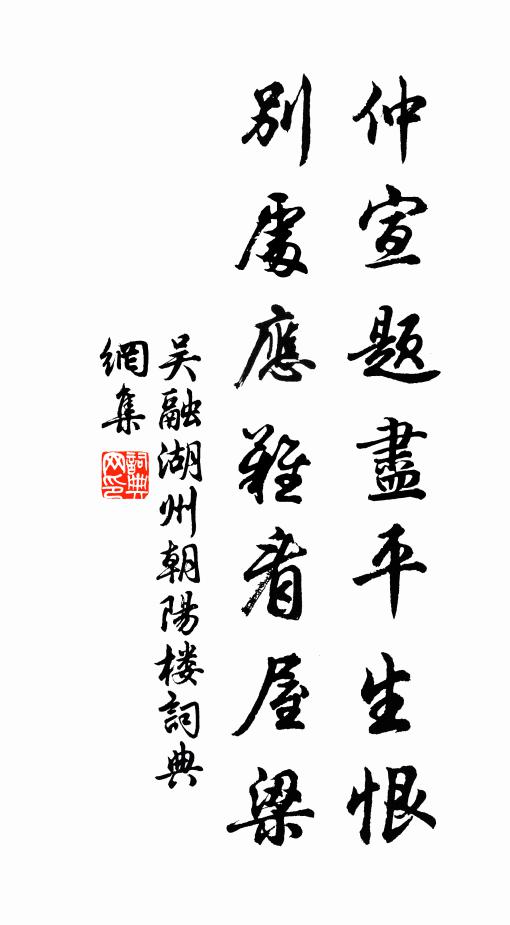 仲宣題盡平生恨
別處應難看屋梁
吴融湖州朝陽楼詞典
網集
詞典网印